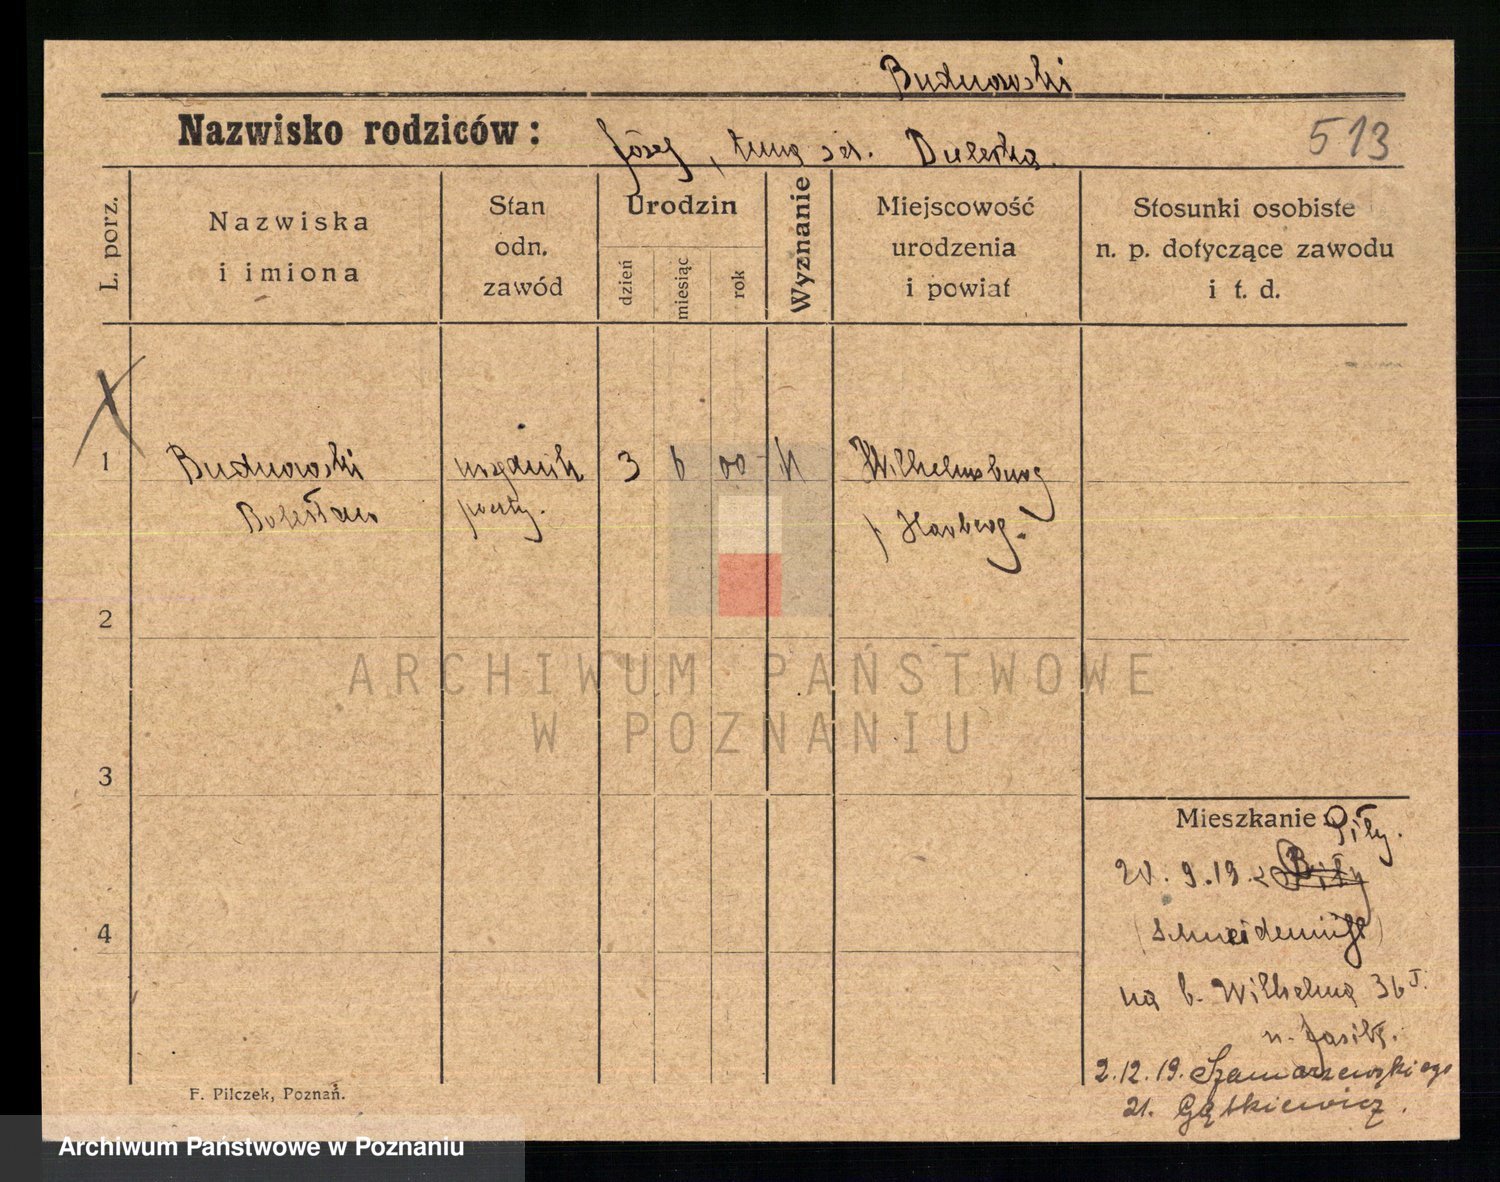 Budnowski
Nazwisko rodziców: Józef, Anna Dulewska.
513
L. porz.
Nazwiska
i imiona
Stan
odn.
zawód
Urodzin
dzień
miesiąc
rok
Wyznanie
Miejscowość
urodzenia
i powiat
Stosunki osobiste
n. p. dotyczące zawodu
i t. d.
1
Budnowski
Bolesław
urzędnik
poczty.
3 6 00
Wilhelmsburg
p Harberg.
2
3
4
Mieszkanie:
Piły.
20. 9. 19. z
(Schneidemühl)
na b. Wilhelma 36 I.
2.12.19. Szamarzewskiego
21.
F. Pilczek, Poznań.
ARCHIWUM PAŃSTWOWE
W POZNANIU
Archiwum Państwowe w Poznaniu